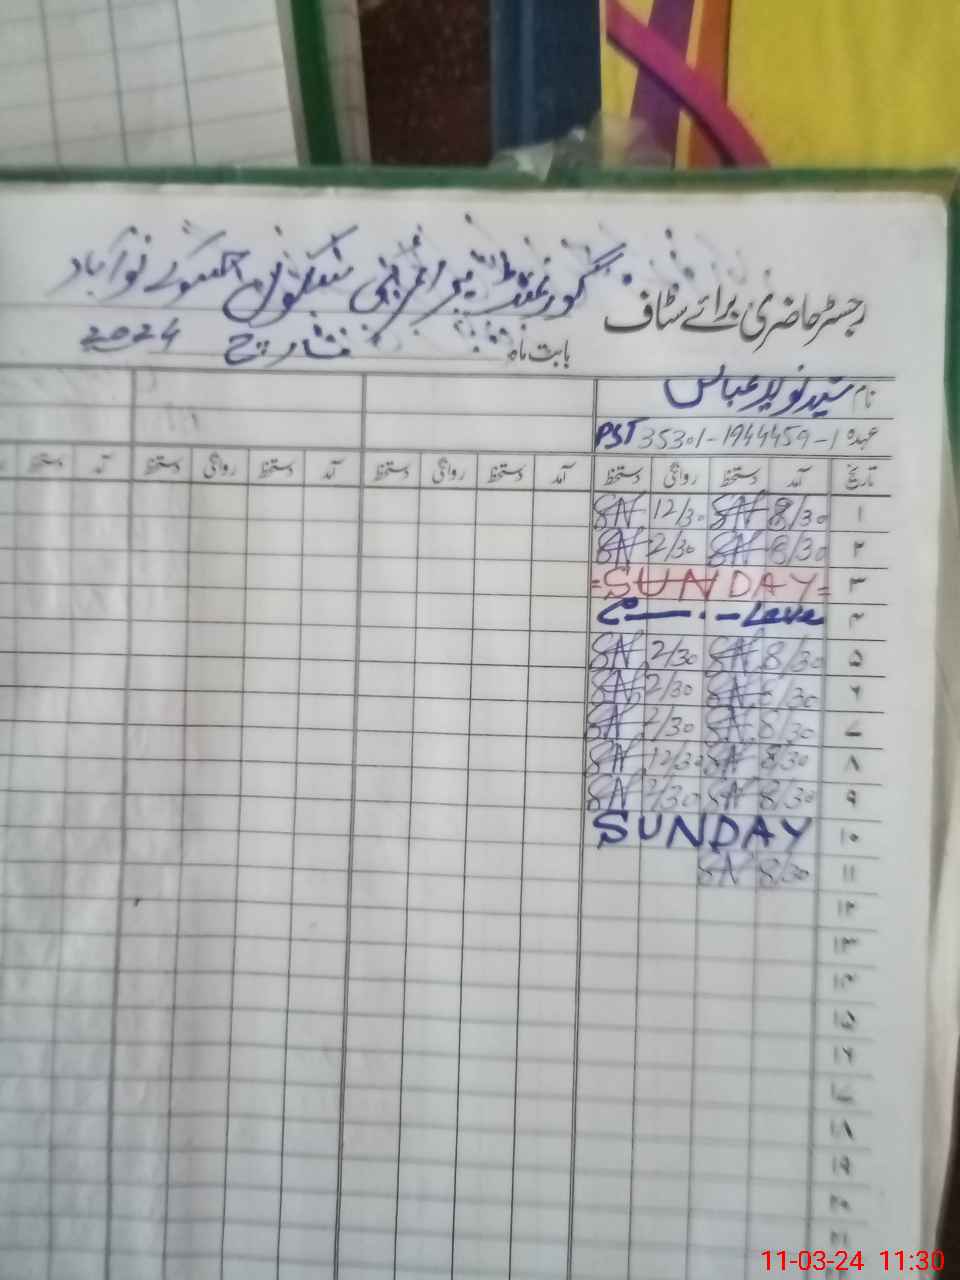 رجسٹر حاضری برائے سٹاف گورنمنٹ پرائمری سکول نوآباد
بابت ماہ مارچ 2024
نام سید نوید عباس
عہدہ PST 35301-1944459-1
تاریخ آمد دستخط روانگی دستخط آمد دستخط روانگی دستخط آمد دستخط روانگی دستخط آمد دستخط
۱ 8/30 SN 12/30 SN
۲ 8/30 SN 2/30 SN
۳ =SUNDAY=
۴ Leave
۵ 8/30 SN 2/30 SN
۶ 8/30 SN 2/30 SN
۷ 8/30 SN 2/30 SN
۸ 8/30 SN 12/30 SN
۹ 8/30 SN 2/30 SN
۱۰ SUNDAY
۱۱ 8/30 SN
۱۲
۱۳
۱۴
۱۵
۱۶
۱۷
۱۸
۱۹
۲۰
۲۱
11-03-24 11:30